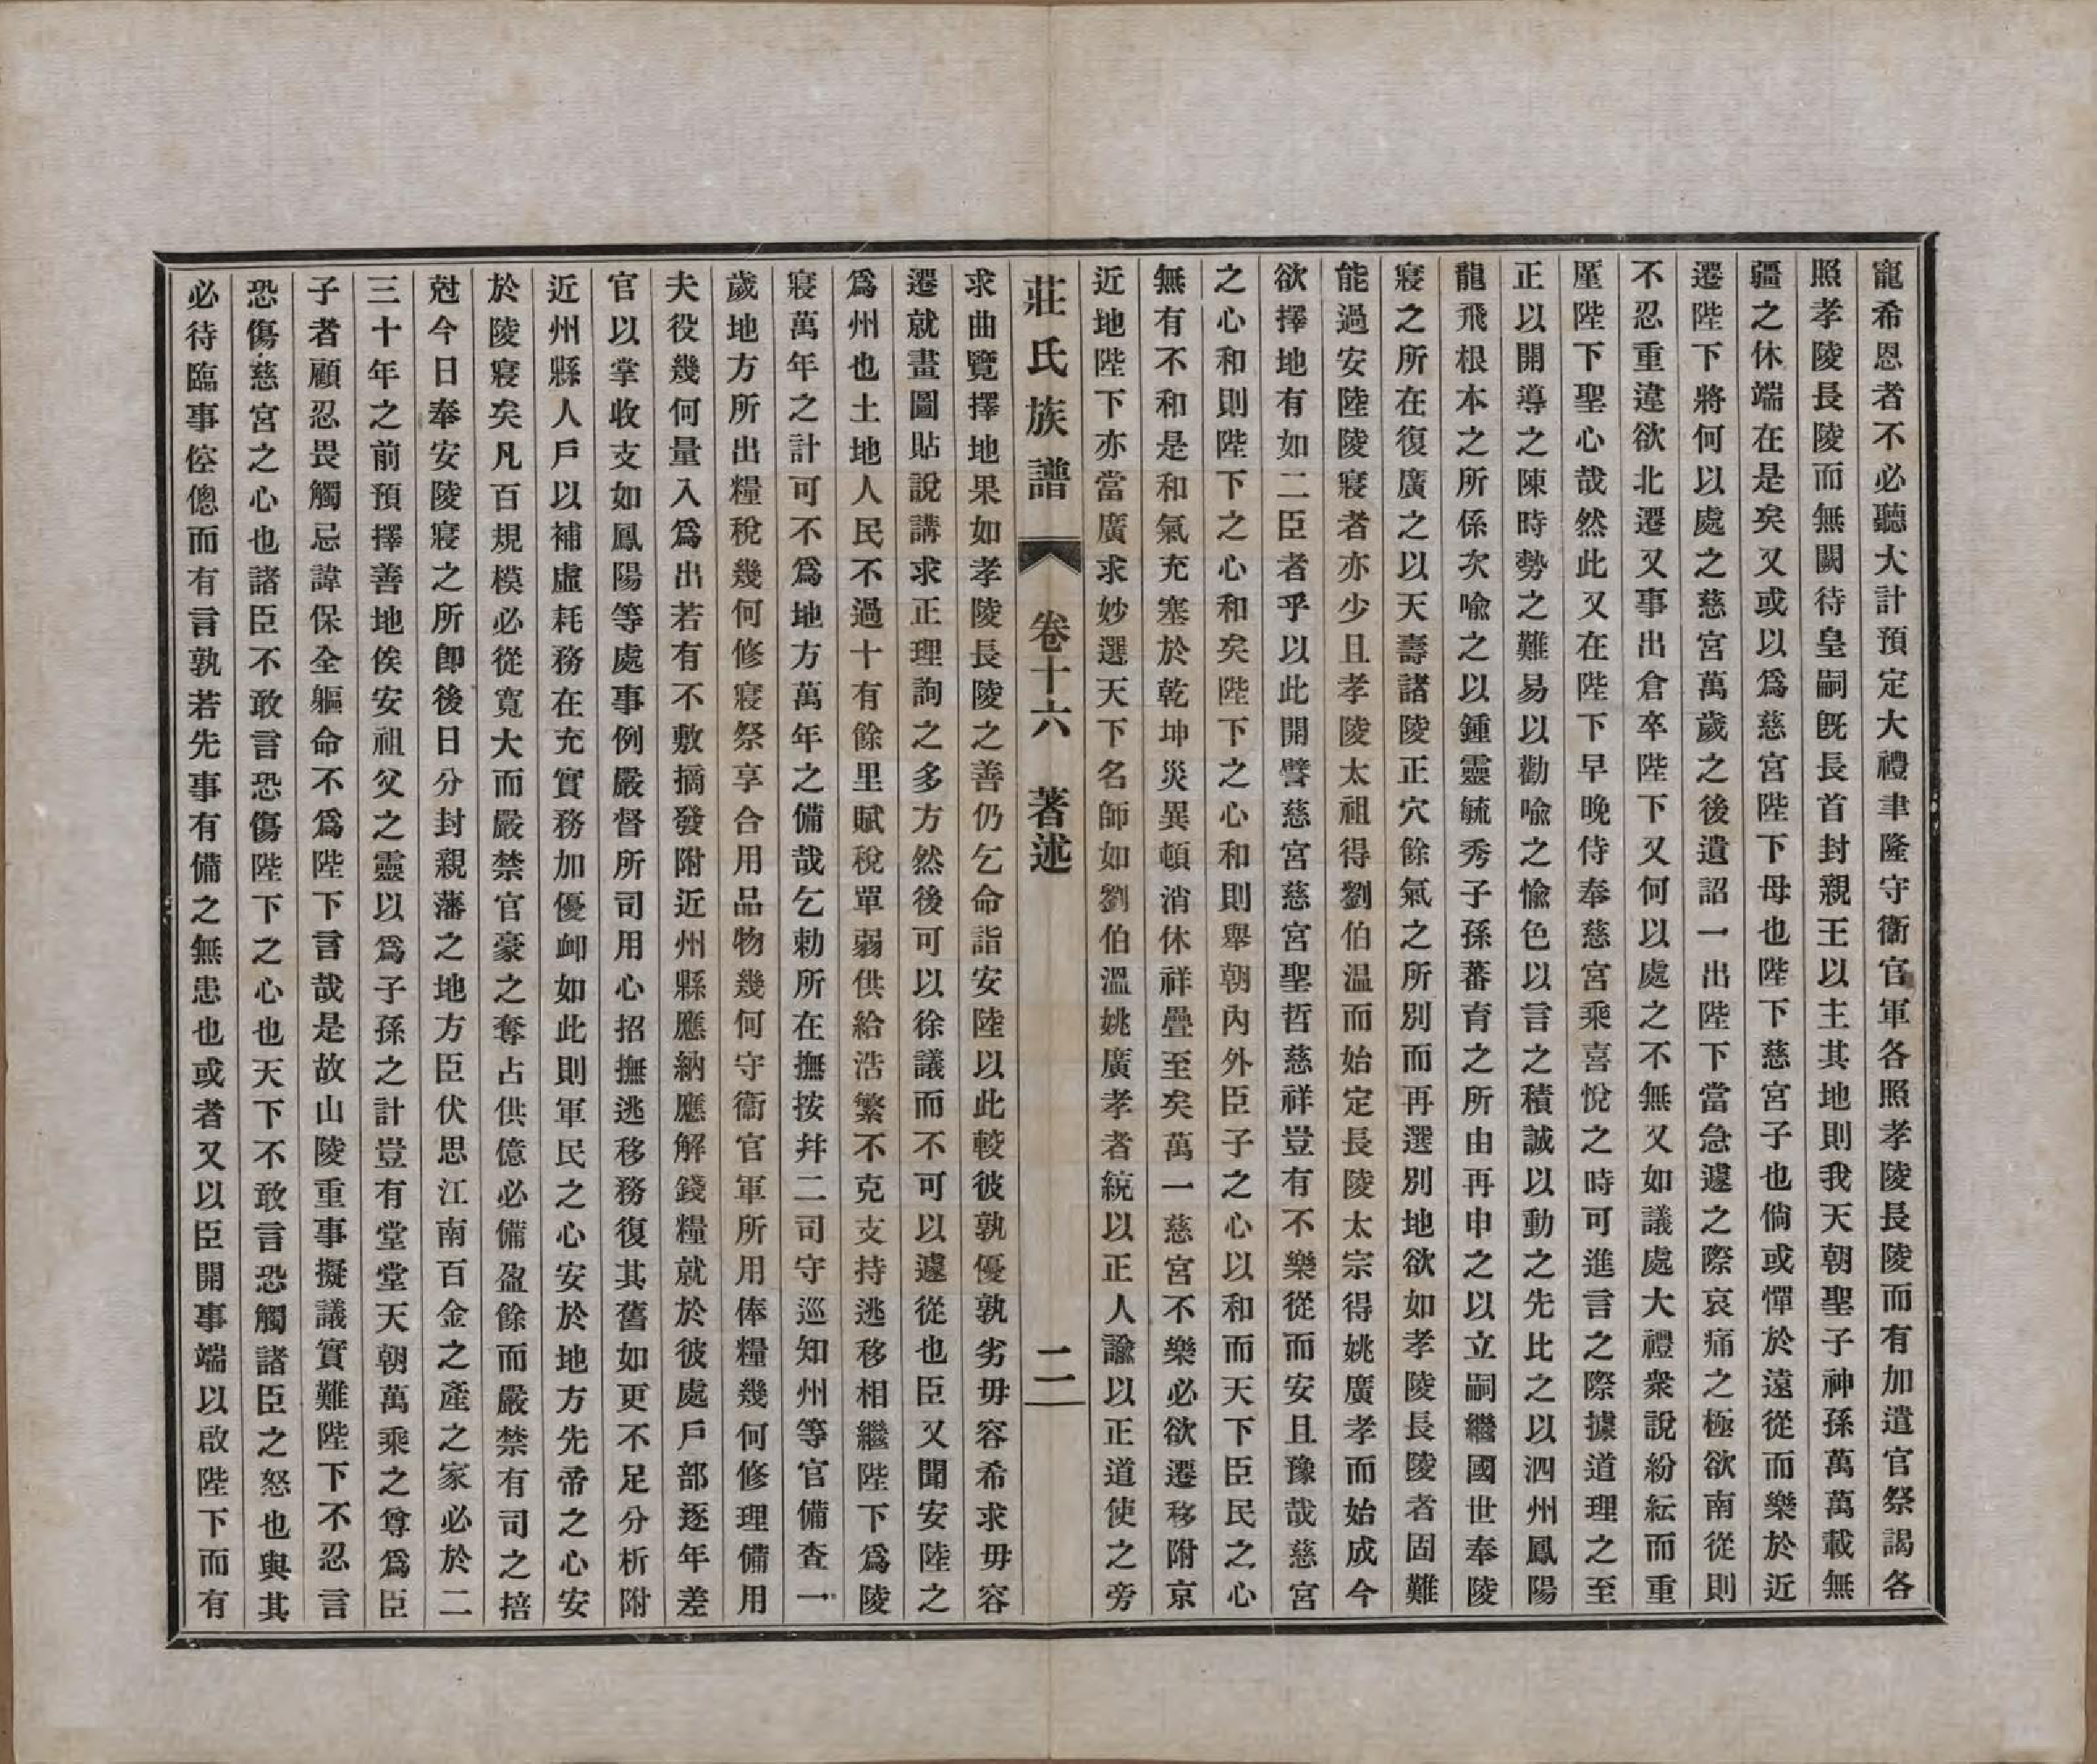 寵希恩者不必聽大計預定大禮聿隆守衞官軍各照孝陵長陵而有加遣官祭謁各
照孝陵長陵而無闕待皇嗣旣長首封親王以主其地則我天朝聖子神孫萬萬載無
疆之休端在是矣又或以爲慈宮陛下母也陛下慈宮子也倘或憚於遠從而樂於近
遷陛下將何以處之慈宮萬歲之後遺詔一出陛下當急遽之際哀痛之極欲南從則
不忍重違欲北遷又事出倉卒陛下又何以處之不無又如議處大禮衆說紛紜而重
厪陛下聖心哉然此又在陛下早晚侍奉慈宮乘喜悅之時可進言之際據道理之至
正以開導之陳時勢之難易以勸喩之愉色以言之積誠以動之先比之以泗州鳳陽
龍飛根本之所係次喩之以鍾靈毓秀子孫蕃育之所由再申之以立嗣繼國世奉陵
寢之所在復廣之以天壽諸陵正穴餘氣之所別而再選別地欲如孝陵長陵者固難
能過安陸陵寢者亦少且孝陵太祖得劉伯温而始定長陵太宗得姚廣孝而始成今
欲擇地有如二臣者乎以此開譬慈宮慈宮聖哲慈祥豈有不樂從而安且豫哉慈宮
之心和則陛下之心和矣陛下之心和則舉朝內外臣子之心以和而天下臣民之心
無有不和是和氣充塞於乾坤災異頓消休祥疊至矣萬一慈宮不樂必欲遷移附京
近地陛下亦當廣求妙選天下名師如劉伯溫姚廣孝者統以正人諭以正道使之旁
莊氏族譜　卷十六　著述　二
求曲覽擇地果如孝陵長陵之善仍乞命詣安陸以此較彼孰優孰劣毋容希求毋容
遷就畫圖貼說講求正理詢之多方然後可以徐議而不可以遽從也臣又聞安陸之
爲州也土地人民不過十有餘里賦稅單弱供給浩繁不克支持逃移相繼陛下爲陵
寢萬年之計可不爲地方萬年之備哉乞勅所在撫按幷二司守巡知州等官備查一
歲地方所出糧稅幾何修寢祭享合用品物幾何守衞官軍所用俸糧幾何修理備用
夫役幾何量入爲出若有不敷摘發附近州縣應納應解錢糧就於彼處戶部逐年差
官以掌收支如鳳陽等處事例嚴督所司用心招撫逃移務復其舊如更不足分析附
近州縣人戶以補虛耗務在充實務加優卹如此則軍民之心安於地方先帝之心安
於陵寢矣凡百規模必從寬大而嚴禁官豪之奪占供億必備盈餘而嚴禁有司之掊
尅今日奉安陵寢之所卽後日分封親藩之地方臣伏思江南百金之產之家必於二
三十年之前預擇善地俟安祖父之靈以爲子孫之計豈有堂堂天朝萬乘之尊爲臣
子者顧忍畏觸忌諱保全軀命不爲陛下言哉是故山陵重事擬議實難陛下不忍言
恐傷慈宮之心也諸臣不敢言恐傷陛下之心也天下不敢言恐觸諸臣之怒也與其
必待臨事倥傯而有言孰若先事有備之無患也或者又以臣開事端以啟陛下而有